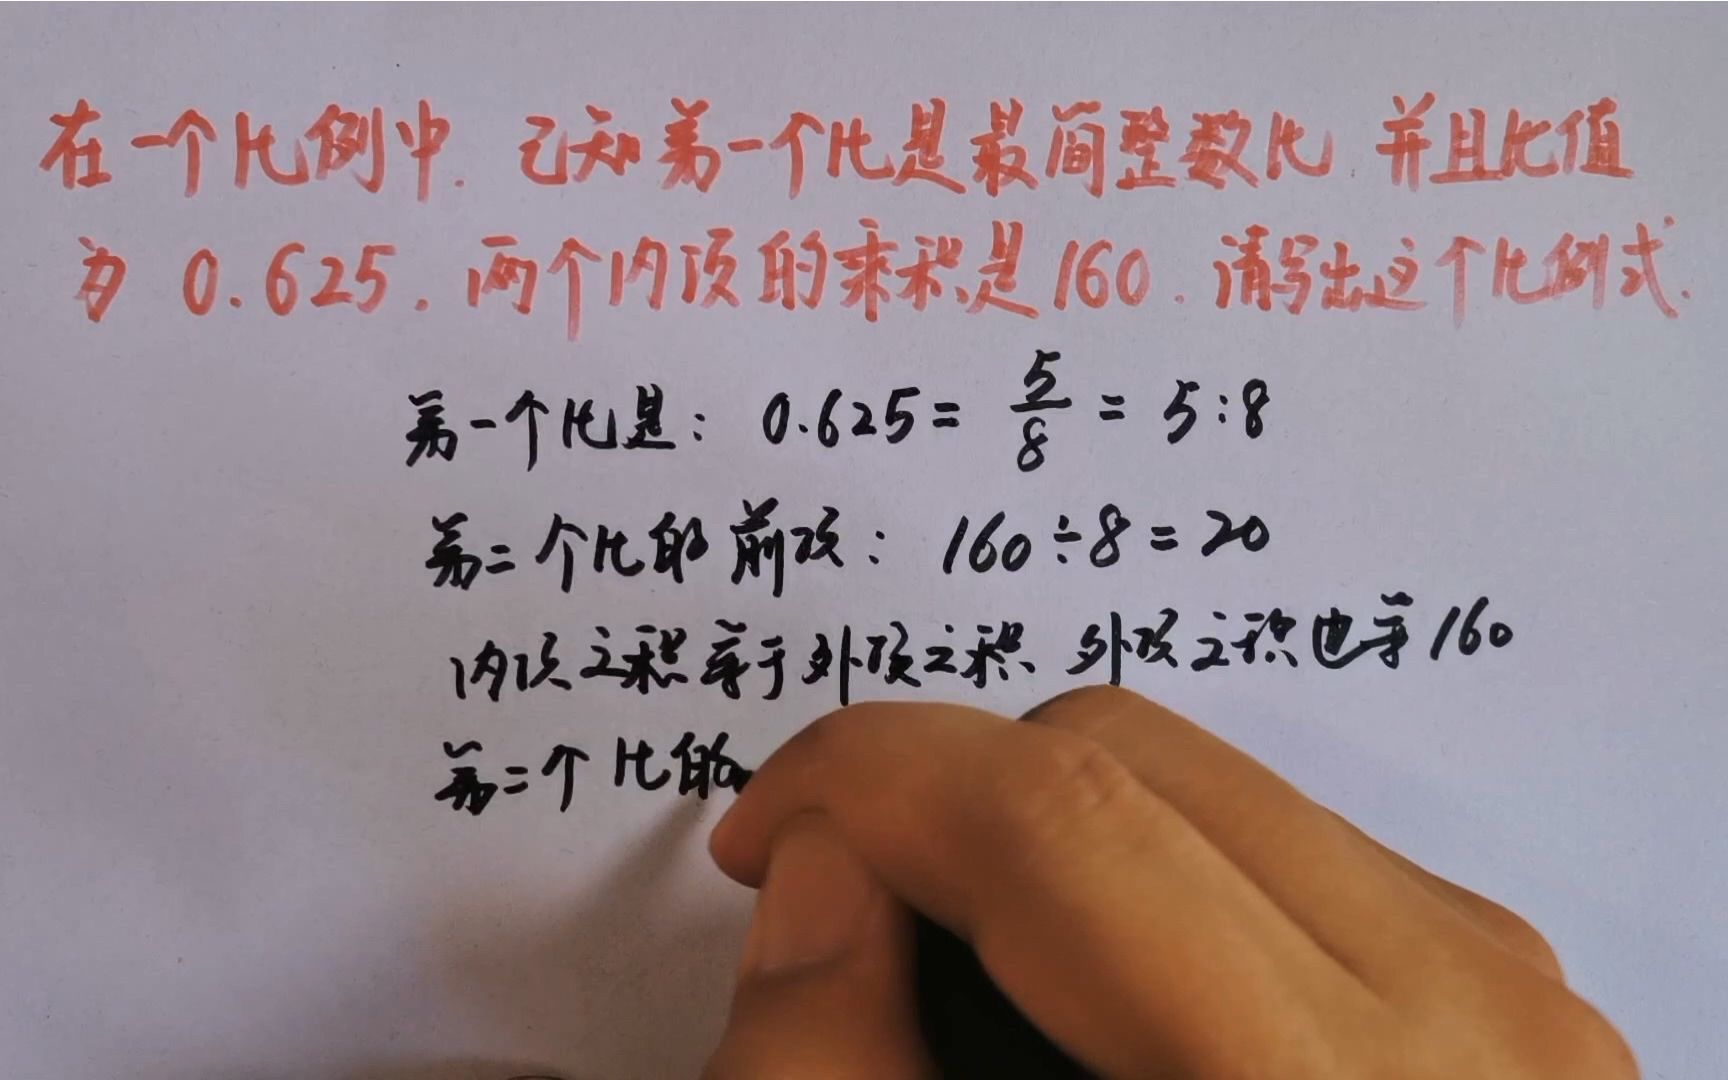 在一个比例中.已知第一个比是最简整数比.并且比值
为0.625.两个内项的乘积是160.请写出这个比例式.
第一个比是：0.625=5/8=5:8
第二个比的前项：160÷8=20
内项之积等于外项之积 外项之积也等160
第二个比的